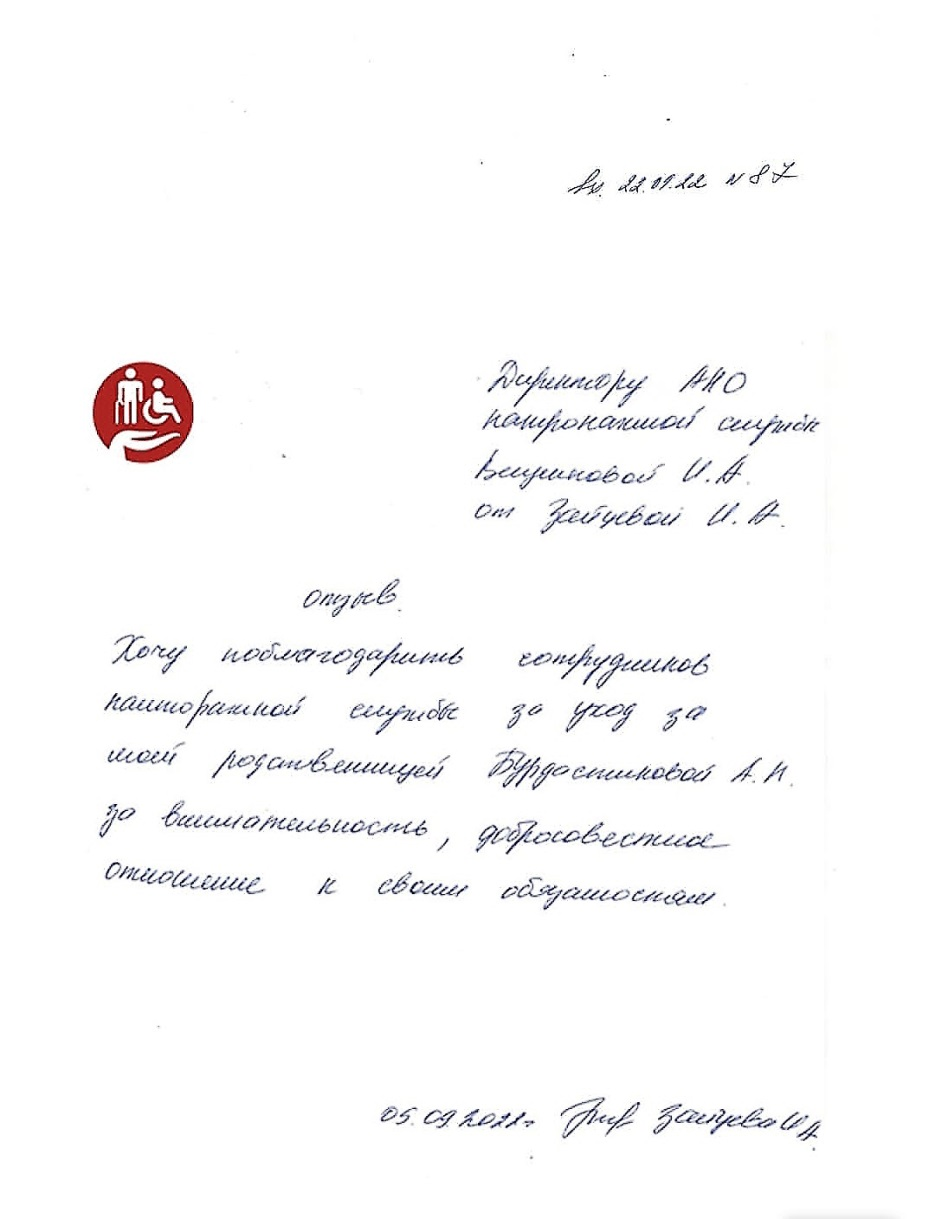 Вх. 22.09.22 N 87
Директору АНО
патронажной службы
И. А.
от Зайцевой И. А.
отзыв.
Хочу поблагодарить сотрудников
службы за уход за
моей родственницей Бурдастиковой А. Н.
за внимательность, добросовестное
отношение к своим обязаностям.
05.09.2022г Зайцева И А